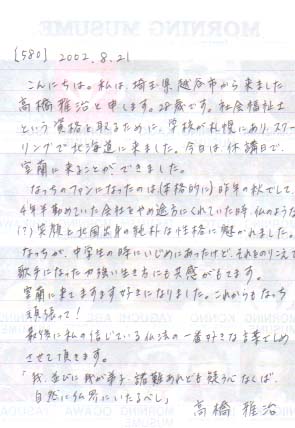 MORNING MUSUME
[580] 2002.8.21
こんにちは。私は、埼玉県越谷市から来ました
高橋雅治と申します。28歳です。社会福祉士
という資格を取るために、学校が札幌にあり、スクー
リングで北海道に来ました。今日は、休講日で、
室蘭に来ることができました。
なっちのファンになったのは(本格的に)昨年の秋でして、
4年半勤めていた会社をやめ途方にくれていた時、仏のような
(?)笑顔と北国出身の純朴な性格に魅かれました。
なっちが、中学生の時にいじめにあったけど、それをのりこえて
歌手になった力強い生き方にも共感がもてます。
室蘭に来てますます好きになりました。これからもなっち
頑張って!
最後に私の信じている仏法の一番好きな言葉でしめ
させて頂きます。
「我、並びに我が弟子、諸難ありとも疑う心なくば、
自然に仏界にいたるべし」
高橋雅治